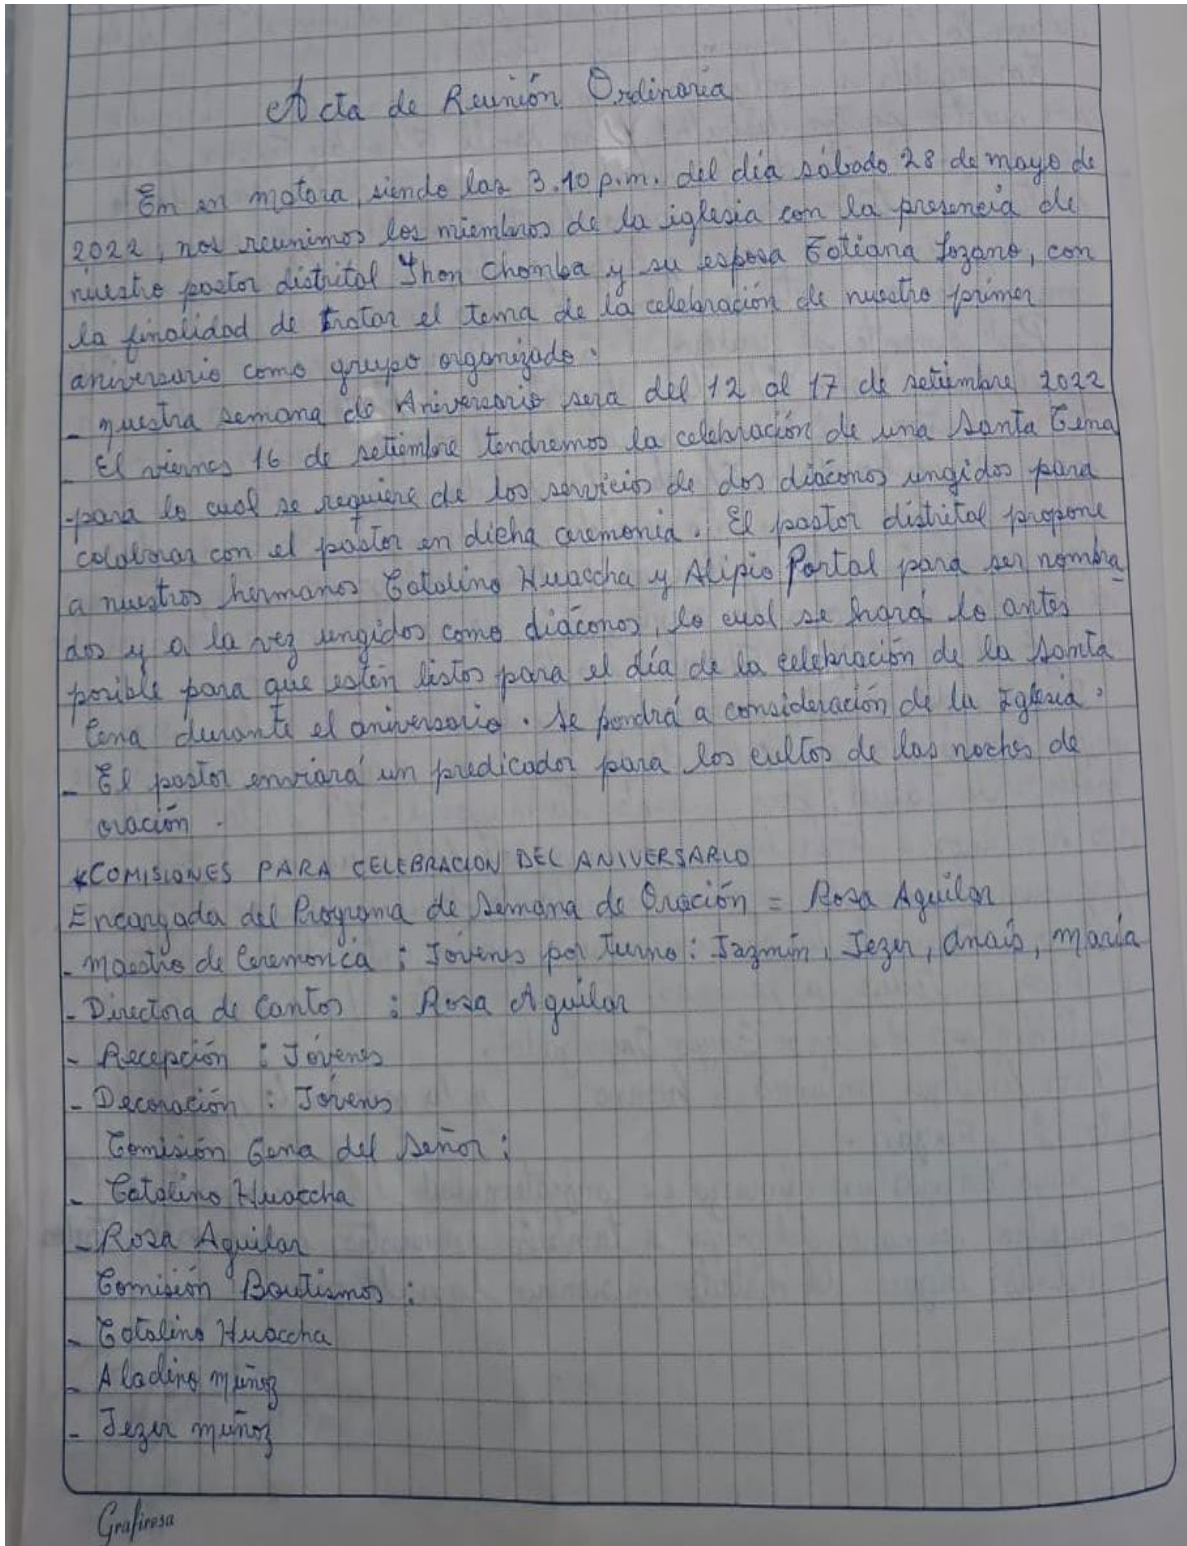 Acta de Reunión Ordinaria
En matara, siendo las 3.10 p.m. del día sábado 28 de mayo de
2022, nos reunimos los miembros de la iglesia con la presencia de
nuestro pastor distrital Jhon Chomba y su esposa Tatiana Lozano, con
la finalidad de tratar el tema de la celebración de nuestro primer
aniversario como grupo organizado.
- nuestra semana de Aniversario sera del 12 al 17 de setiembre 2022
- El viernes 16 de setiembre tendremos la celebración de una Santa Cena
para lo cual se requiere de los servicios de dos diáconos ungidos para
colaborar con el pastor en dicha ceremonia. El pastor distrital propone
a nuestros hermanos Catalino Huaccha y Alipio Portal para ser nombra_
dos y a la vez ungidos como diáconos, lo cual se hará lo antes
posible para que estén listos para el día de la celebración de la Santa
Cena durante el aniversario. Se pondrá a consideración de la Iglesia.
- El pastor enviará un predicador para los cultos de las noches de
oración.
*COMISIONES PARA CELEBRACION DEL ANIVERSARIO
Encargada del Programa de Semana de Oración = Rosa Aguilar
- Maestro de Ceremonia : Jóvenes por turno: Jazmín, Jezer, Anaís, María
- Directora de Cantos : Rosa Aguilar
- Recepción : Jóvenes
- Decoración : Jóvens
Comisión Cena del Señor :
- Catalino Huaccha
- Rosa Aguilar
Comisión Bautismos :
- Catalino Huaccha
- Aladino Muñoz
- Jezer Muñoz
Grafinesa